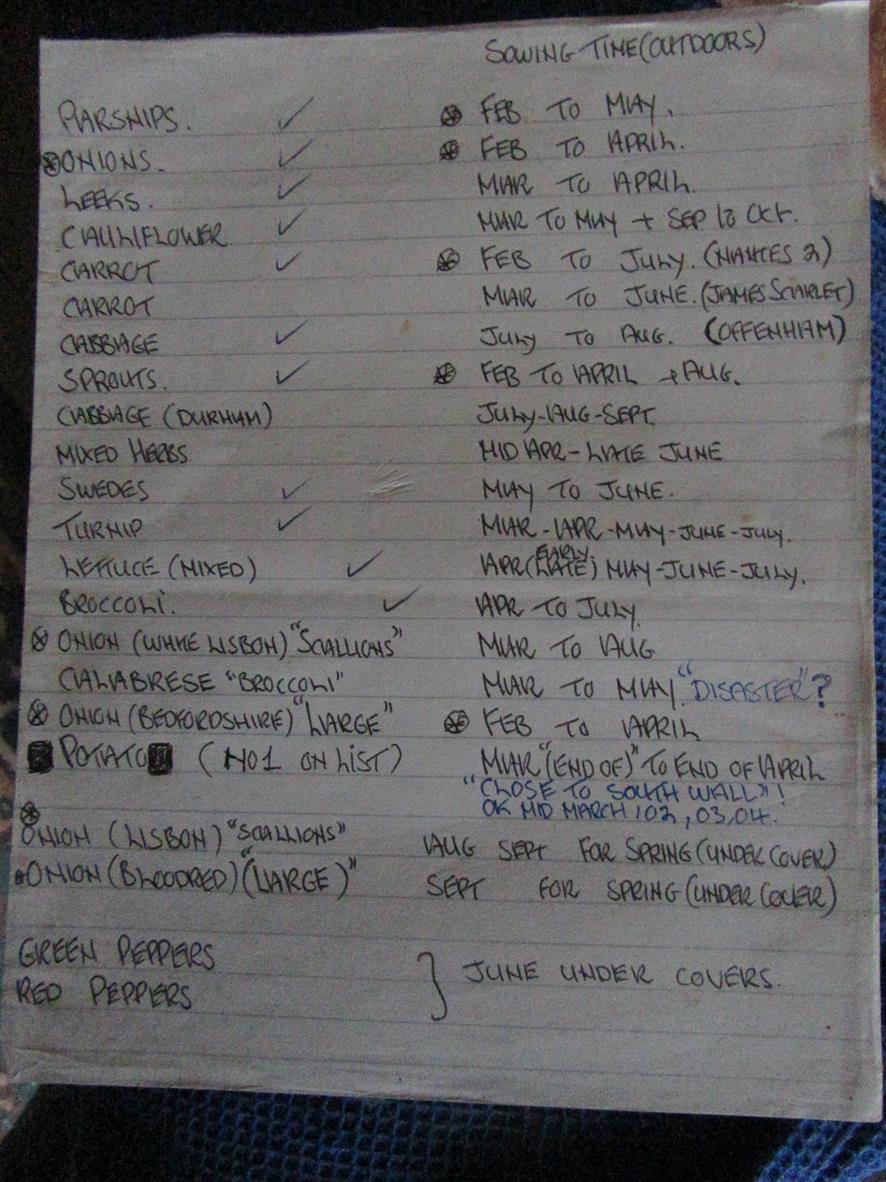 SOWING TIME (OUTDOORS)
PARSHIPS. ✓ FEB TO MAY.
ONIONS. ✓ FEB TO APRIL.
LEEKS. ✓ MAR TO APRIL.
CAULIFLOWER ✓ MAR TO MAY + SEP TO OCT.
CARROT ✓ FEB TO JULY. (NANTES 2)
CARROT MAR TO JUNE. (JAMES SCARLET)
CABBAGE ✓ JULY TO AUG. (OFFENHAM)
SPROUTS. ✓ FEB TO APRIL + AUG.
CABBAGE (DURHAM) JULY-AUG-SEPT.
MIXED HERBS MID APR - LATE JUNE
SWEDES ✓ MAY TO JUNE.
TURNIP ✓ MAR-APR-MAY-JUNE-JULY.
EARLY.
LETTUCE (MIXED) ✓ APR (LATE) MAY-JUNE-JULY.
BROCCOLI. ✓ APR TO JULY.
ONION (WHITE LISBON) "SCALLIONS" MAR TO AUG
CALABRESE "BROCCOLI" MAR TO MAY. "DISASTER"?
ONION (BEDFORDSHIRE) "LARGE" FEB TO APRIL
POTATO (NO1 ON LIST) MAR "(END OF)" TO END OF APRIL
"CLOSE TO SOUTH WALL"!
OK MID MARCH, 02, 03, 04.
ONION (LISBON) "SCALLIONS" AUG SEPT FOR SPRING (UNDER COVER)
ONION (BLOODRED) "(LARGE)" SEPT FOR SPRING (UNDER COVER)
GREEN PEPPERS
RED PEPPERS } JUNE UNDER COVERS.